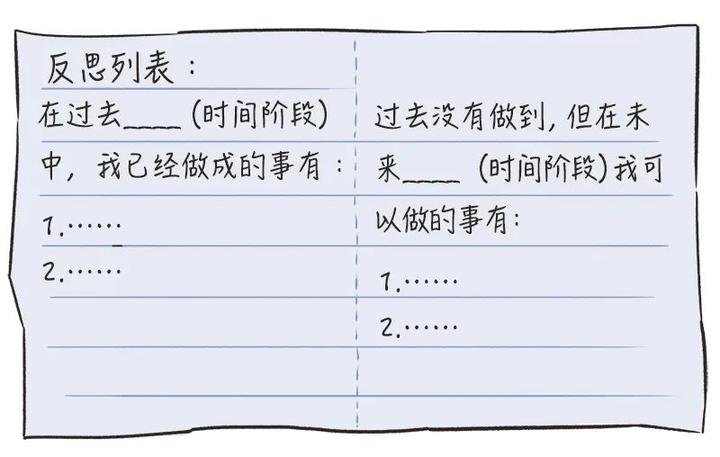 反思列表：
在过去____(时间阶段)
中，我已经做成的事有：
1.……
2.……
过去没有做到,但在未
来____ (时间阶段)我可
以做的事有:
1.……
2.……